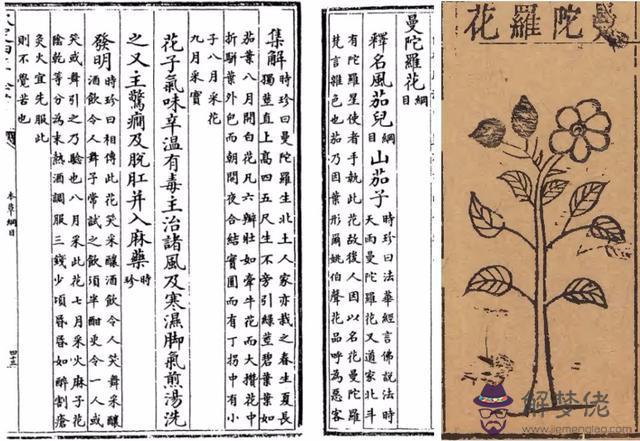 曼陀羅花
曼陀羅花綱目
釋名風茄兒綱目山茄子時珍曰法華經言佛說法時
天雨曼陀羅花又道家北斗
有陀羅星使者手執此花故後人因以名花曼陀羅
梵言雜色也茄乃因葉形爾姚伯聲花品呼為惡客
集解時珍曰曼陀羅生北土人家亦栽之春生夏長
獨莖直上高四五尺生不旁引綠莖碧葉葉如
茄葉八月開白花凡六瓣狀如牽牛花而大攢花中
折駢葉外包而朝開夜合結實圓而有丁拐中有小
子八月采花
九月采實
花子氣味辛溫有毒主治諸風及寒濕脚氣煎湯洗
之又主驚癇及脫肛并入麻藥時珍
發明時珍曰相傳此花笑采釀酒飲令人笑舞采釀
酒飲令人舞子常試之飲須半酣更令一人或
笑或舞引之乃驗也八月采此花七月采火麻子花
陰乾等分為末熱酒調服三錢少頃昏昏如醉割瘡
灸火宜先服此
則不覺苦也
本草綱目
解梦佬
www.jiemenglao.com